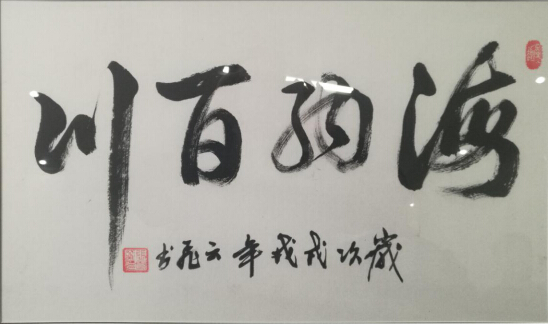 海纳百川
歲次戊戌年云书